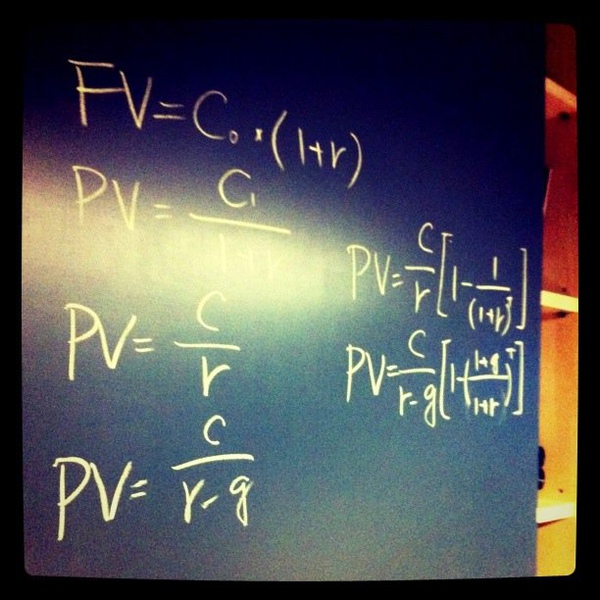 FV = C₀ · (1+r)
PV = C₁ / (1+r)
PV = C / r
PV = C / (r-g)
PV = C/r [1 - 1/(1+r)ᵀ]
PV = C/(r-g) [1 - ((1+g)/(1+r))ᵀ]